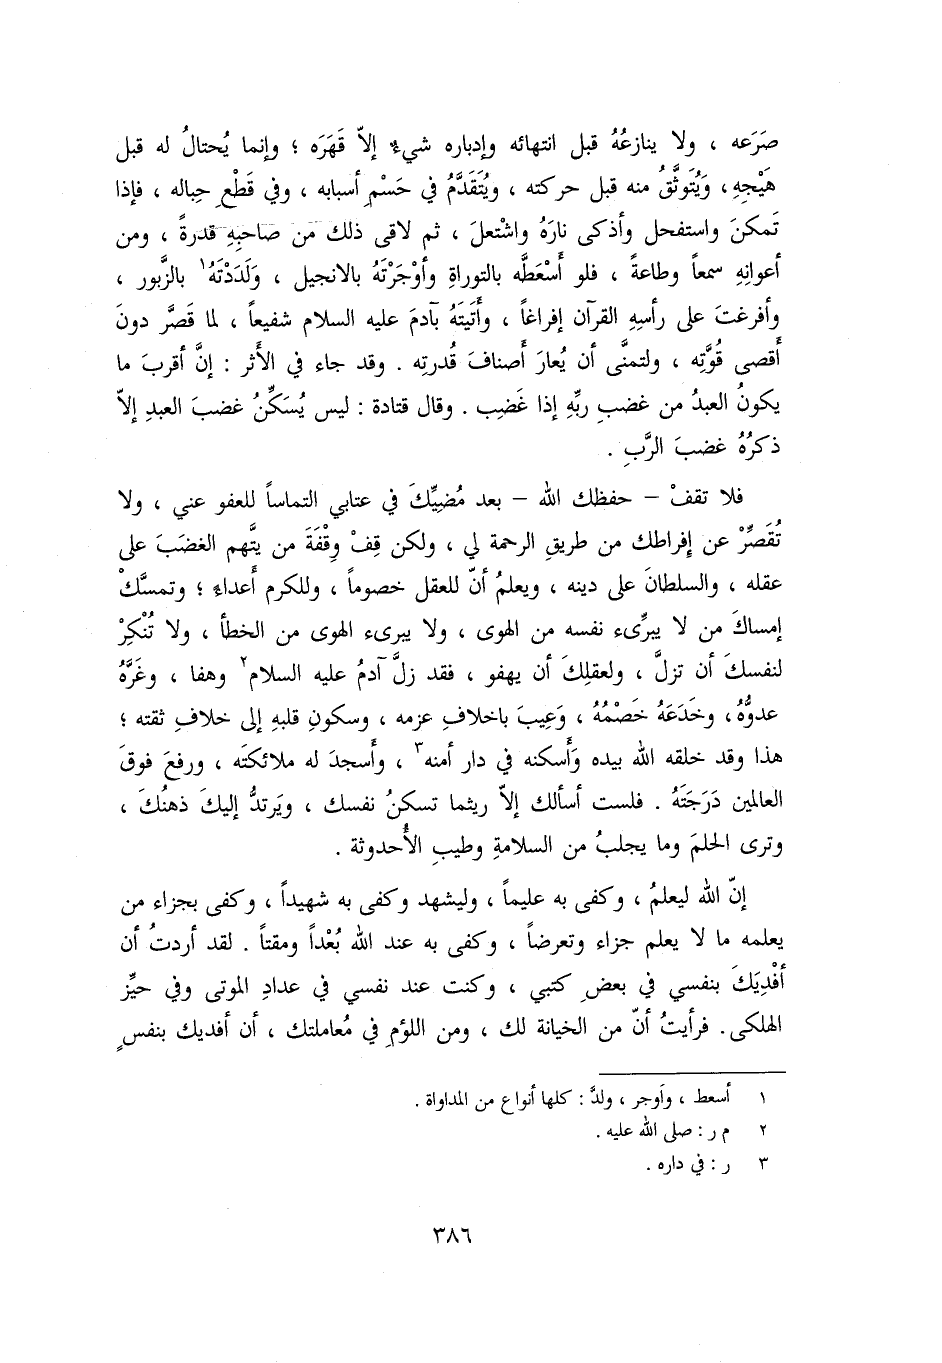 صَرَعه ، ولا ينازعُهُ قبل انتهائه وإدباره شيءٌ إلاّ قَهَرَه ؛ وإنما يُحتالُ له قبل
هَيْجِهِ ، وَيُتَوثَّقُ منه قبل حركته ، ويُتَقَدَّمُ في حَسْمِ أسبابه ، وفي قَطْعِ حِباله ، فإذا
تَمكنَ واستفحل وأذكى نارَهُ واشْتعلَ ، ثم لاقى ذلك مَن صَاحبِهِ قدرةً ، ومن
أعوانِهِ سمعاً وطاعةً ، فلو أَسْعَطَّه بالتوراةِ وأوْجَرْتَهُ بالانجيل ، وَلَدَدْتَهُ١ بالزَّبور ،
وأفرغتَ على رأسِهِ القرآن إفراغاً ، وأَتَيتَهُ بآدمَ عليه السلام شفيعاً ، لما قَصَّر دونَ
أَقصى قُوَّتِه ، ولتمنَّى أن يُعارَ أَصنافَ قُدرتِه . وقد جاء في الأَثر : إنَّ أقربَ ما
يكونُ العبدُ من غضبِ ربِّهِ إذا غَضِب . وقال قتادة : ليس يُسَكِّنُ غضبَ العبدِ إلاّ
ذكرُهُ غضبَ الرَّبِ .
فلا تقفْ – حفظك الله – بعد مُضِيِّكَ في عتابي التماساً للعفو عني ، ولا
تُقَصِّرْ عن إفراطك من طريقِ الرحمة لي ، ولكن قِفْ وِقْفَةَ من يتَّهم الغضَبَ على
عقله ، والسلطانَ على دينه ، ويعلمُ أنّ للعقل خصوماً ، وللكرم أَعداءً ؛ وتمسَّكْ
إمساكَ من لا يبرِّىء نفسه من الهوى ، ولا يبرىء الهوى من الخطأ ، ولا تُنْكِرْ
لنفسكَ أن تزلَّ ، ولعقلِكَ أن يهفو ، فقد زلَّ آدمُ عليه السلام٢ وهفا ، وغَرَّهُ
عدوُّهُ ، وخَدَعَهُ خَصْمُهُ ، وَعِيبَ باخلافِ عزمه ، وسكونِ قلبهِ إلى خلافِ ثقته ؛
هذا وقد خلقه الله بيده وَأَسكنه في دار أمنه٣ ، وأَسجدَ له ملائكتَه ، ورفعَ فوقَ
العالمين دَرَجَتَهُ . فلست أسألك إلاّ ريثما تسكنُ نفسك ، ويَرتدُّ إليكَ ذهنُكَ ،
وترى الحلمَ وما يجلبُ من السلامةِ وطيبِ الأُحدوثة .
إنّ الله ليعلمُ ، وكفى به عليماً ، وليشهد وكفى به شهيداً ، وكفى بجزاء من
يعلمه ما لا يعلم جزاء وتعرضاً ، وكفى به عند الله بُعْداً ومقتاً . لقد أردتُ أن
أفْدِيَكَ بنفسي في بعضِ كتبي ، وكنت عند نفسي في عدادِ الموتى وفي حيِّز
الهلكى . فرأيتُ أنّ من الخيانة لك ، ومن اللؤمِ في مُعاملتك ، أن أفديك بنفسٍ
١ أسعط ، وأوجر ، ولدَّ : كلها أنواع من المداواة .
٢ م ر : صلى الله عليه .
٣ ر : في داره .
٣٨٦